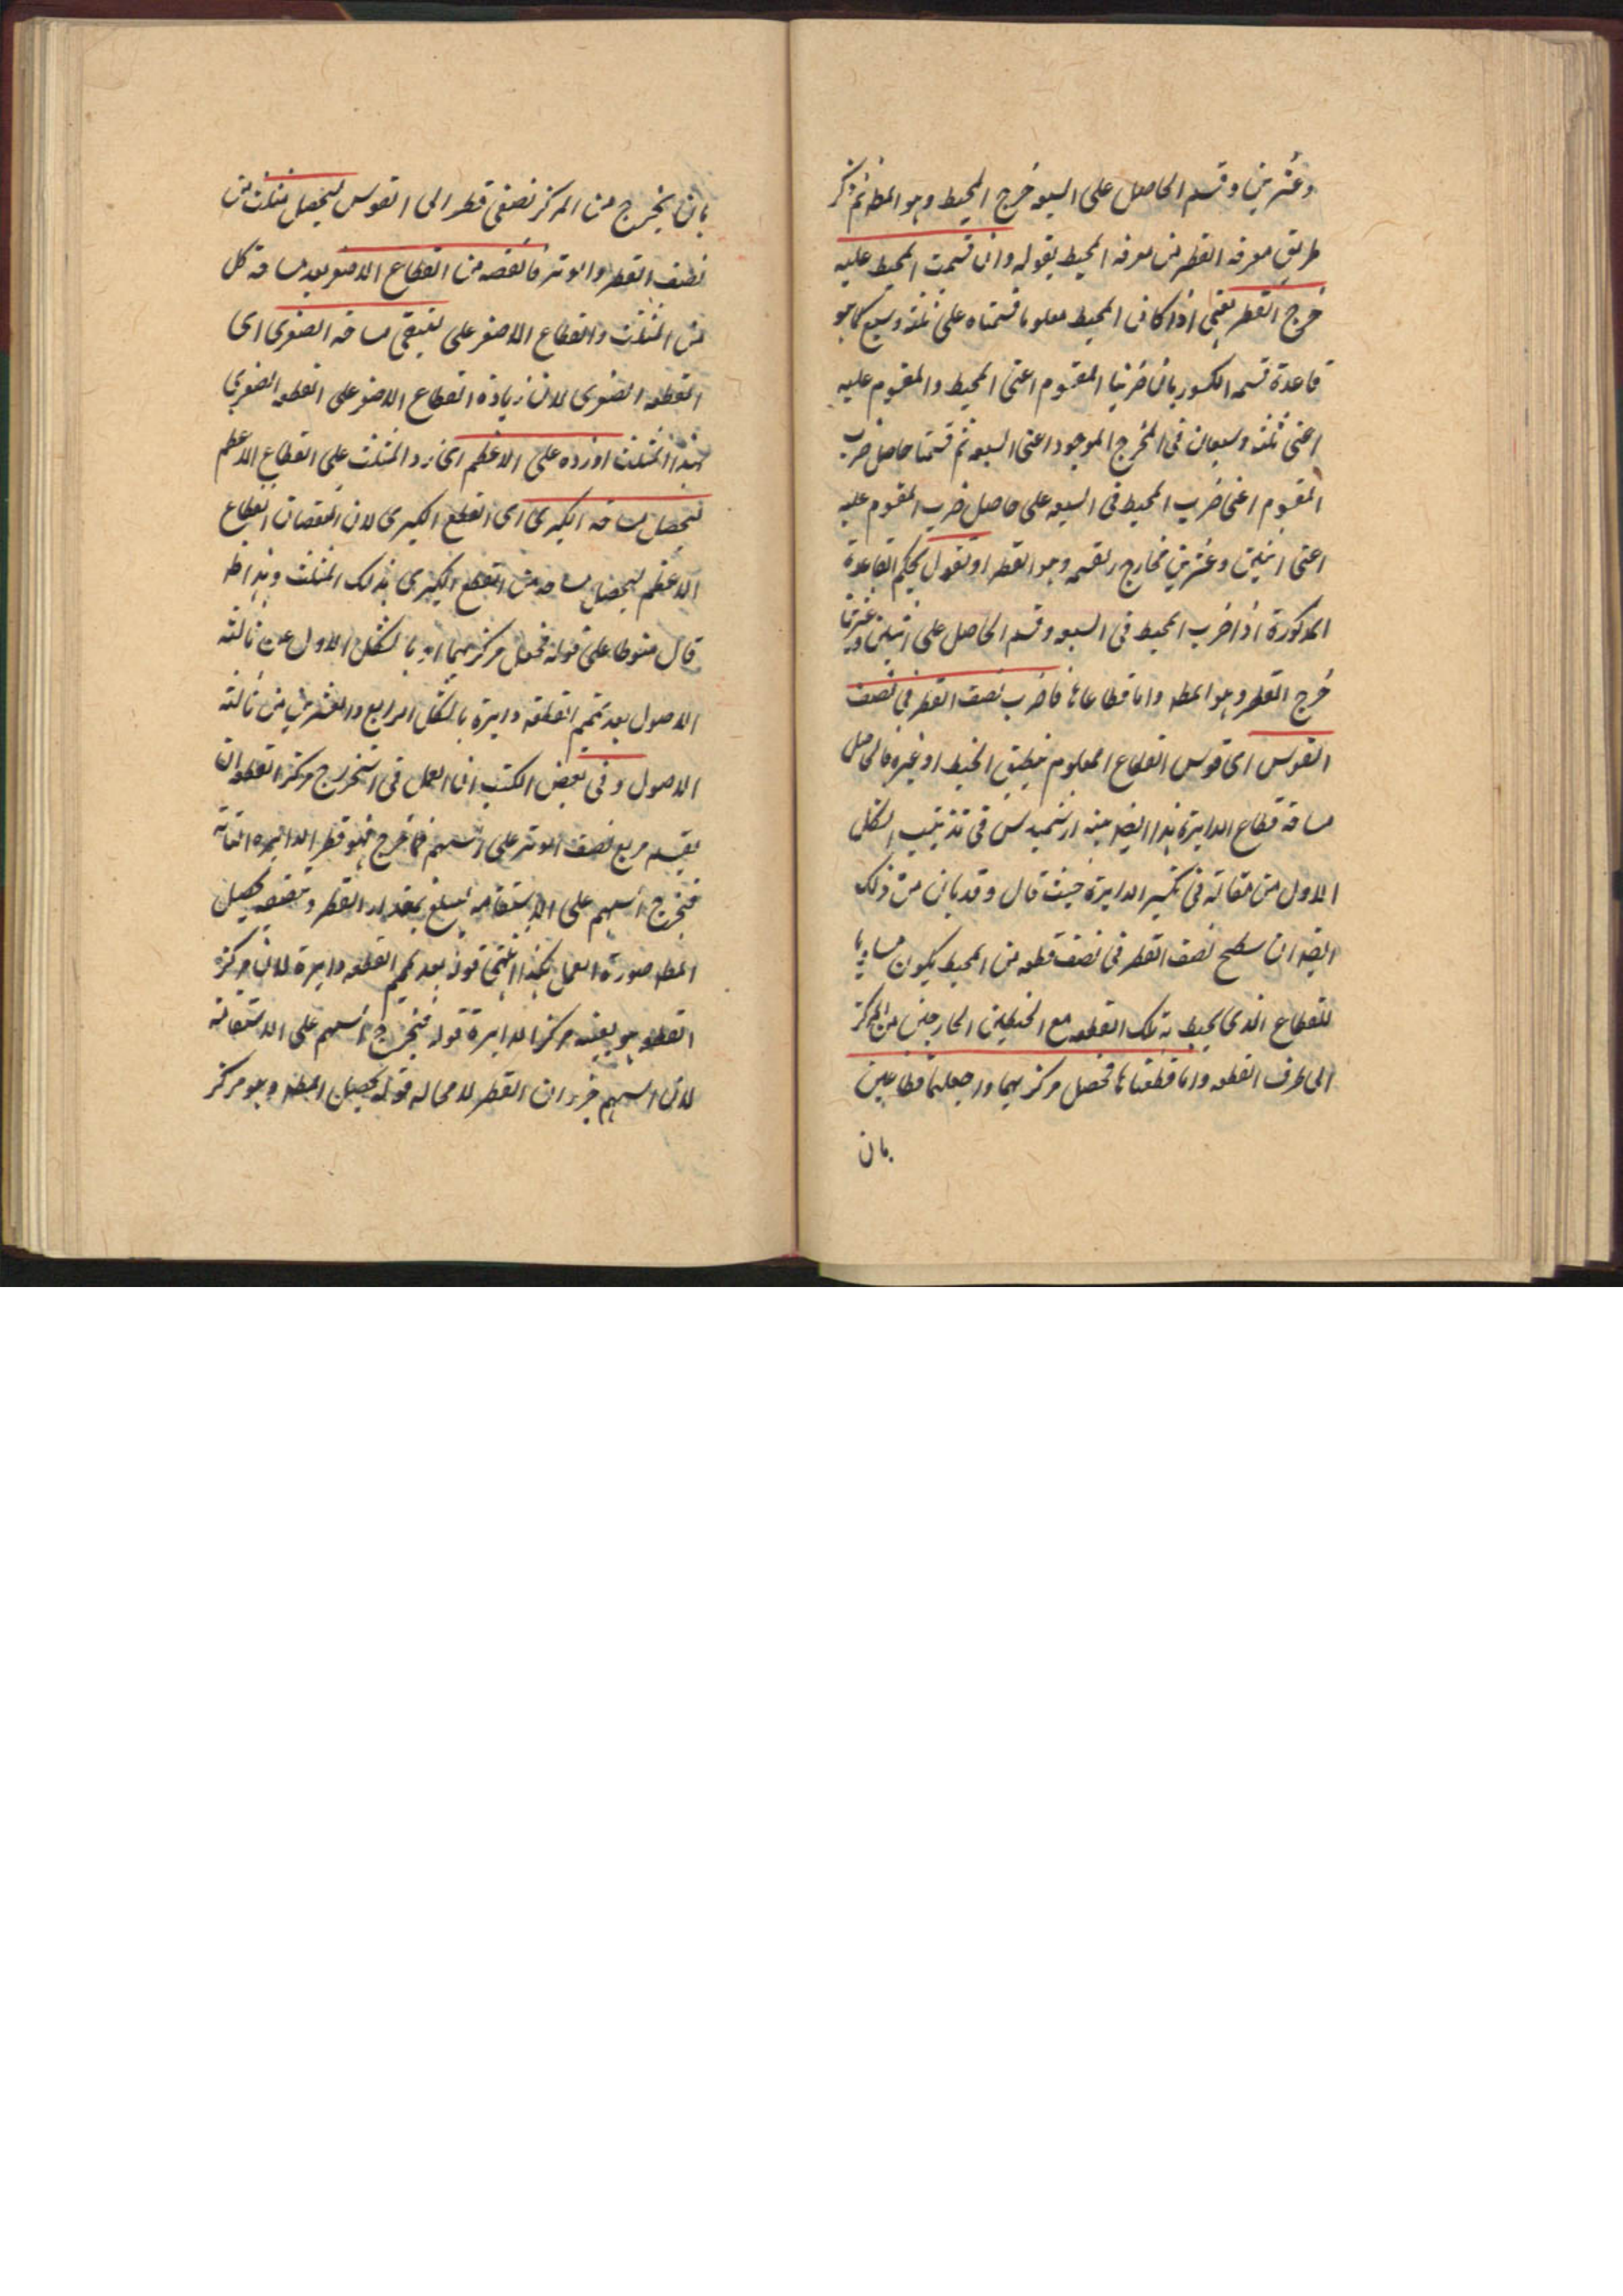 وعشرين وقسم الحاصل على السبعه خرج المحيط وهو المطـ ثم ذكر
طريق معرفه القطر من معرفه المحيط بقوله وان قسمت المحيط عليه
خرج القطر يعنى اذا كان المحيط معلوما قسمناه على ثلثه وسبع كما هو
قاعدة قسمه الكسور بان ضربنا المقسوم اعنى المحيط والمقسوم عليه
اعنى ثلثه وسبعا فى المخرج الموجود اعنى السبعه ثم قسمنا حاصل ضرب
المقسوم اعنى ضرب المحيط فى السبعه على حاصل ضرب المقسوم عليه
اعنى اثنين وعشرين فخارج القسمه وهو القطر او تقول بحكم القاعدة
المذكورة اذا ضرب المحيط فى السبعه وقسم الحاصل على اثنين وعشرين
خرج القطر وهو المطـ واما قطاعاها فاضرب نصف القطر فى نصف
القوس اى قوس القطاع المعلوم بتطبيق الخيط او غيره فالحاصل
مساحة قطاع الدايرة هذا ايضا بينه ارشميدس فى تذنيب الشكل
الاول من مقالته فى تكسير الدايرة حيث قال وقد بان من ذلك
ايضا ان سطح نصف القطر فى نصف قطعه من المحيط يكون مساويا
للقطاع الذى يحيط به تلك القطعه مع الخيطين الخارجين من المركز
الى طرف القطعه واما قطعتاها فحصل مركزيهما واجعلهما قطاعين
بان
بان يخرج من المركز نصفى قطر الى القوس ليحصل مثلث من
نصف القطر والوتر فانقصه من القطاع الاصغر بعد مساحة كل
من المثلث والقطاع الاصغر على ليبقى مساحه الصغرى اى
القطعه الصغرى لان زيادة القطاع الاصغر على القطعه الصغرى
بهذا المثلث او زده على الاعظم اى زد المثلث على القطاع الاعظم
ليحصل مساحه الكبرى اى القطع الكبرى لان النقصان القطاع
الاعظم ليحصل مساحه من القطع الكبرى بذلك المثلث وهذا ظ
قال منوطا على قوله فحصل مركزيهما اى بالشكل الاول من ثالثه
الاصول بعد تتميم القطعه دايرة بالشكل الرابع والعشرين من ثالثه
الاصول وفى بعض الكتب ان العمل فى استخراج مركز القطعه ان
يقسم مربع نصف الوتر على السهم فما خرج فهو قطر الدائره التامه
فيخرج السهم على الاستقامه ليبلغ بمقدار القطر وتنصفه يحصل
المطـ صورة العمل هكذا انتهى قوله بعد تتميم القطعه دايرة لان مركز
القطعه هو بعينه مركز الدايرة قوله فيخرج السهم على الاستقامه
لان السهم جزء ان القطر لا محاله قوله يحصل المطـ وهو مركز